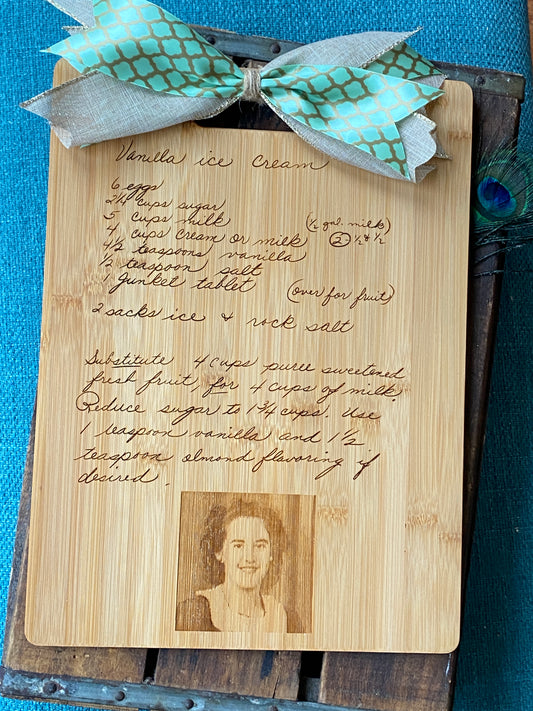 Vanilla ice cream
6 eggs
2 1/4 cups sugar
5 cups milk (1/2 gal. milk)
4 cups cream or milk (2- 1/2 & 1/2)
4 1/2 teaspoons vanilla
1/2 teaspoon salt
1 Junket tablet (over for fruit)
2 sacks ice & rock salt
Substitute 4 cups puree sweetened
fresh fruit, for 4 cups of milk.
Reduce sugar to 1 3/4 cups. Use
1 teaspoon vanilla and 1 1/2
teaspoon almond flavoring if
desired.